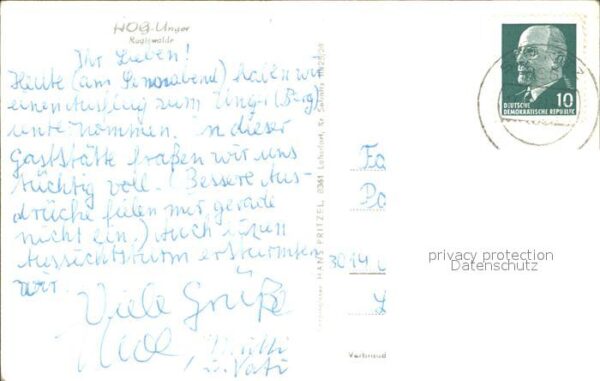 HOG-Unger
Rugiswalde
Ihr Lieben!
Heute (am Sonnabend) haben wir
einen Ausflug zum Unger (Berg)
unternommen. In dieser
Gaststätte fraßen wir uns
tüchtig voll. (Bessere Aus-
drücke fielen mir gerade
nicht ein.) Auch einen
Aussichtsturm erstürmten
wir.
Viele Grüße
Mutti
u. Vati
HANS PRITZEL, 8361 Lohsdorf, Kr. Sebnitz
Fa
Pa
3014
Verbreud
DEUTSCHE
DEMOKRATISCHE REPUBLIK
10
privacy protection
Datenschutz